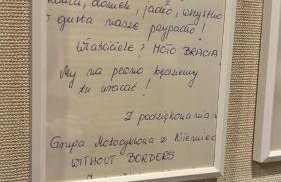 domek, jadło, wszystko
gusta nasze przypadło!
Właściciele? MOTO BRACIA
My na pewno będziemy
tu wracać!
Z podziękowaniami
Grupa Motocyklowa z Niemiec
WITHOUT BORDERS